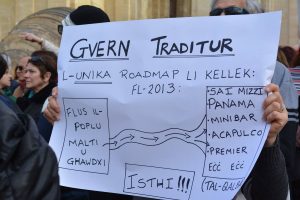 GVERN TRADITUR
L-UNIKA ROADMAP LI KELLEK:
FL-2013:
FLUS IL-
POPLU
MALTI
U
GHAWDXI
SAI MIZZI
PANAMA
MINIBAR
ACAPULCO
PREMIER
EĊĊ EĊĊ
(TAL-QALBA)
ISTHI!!!